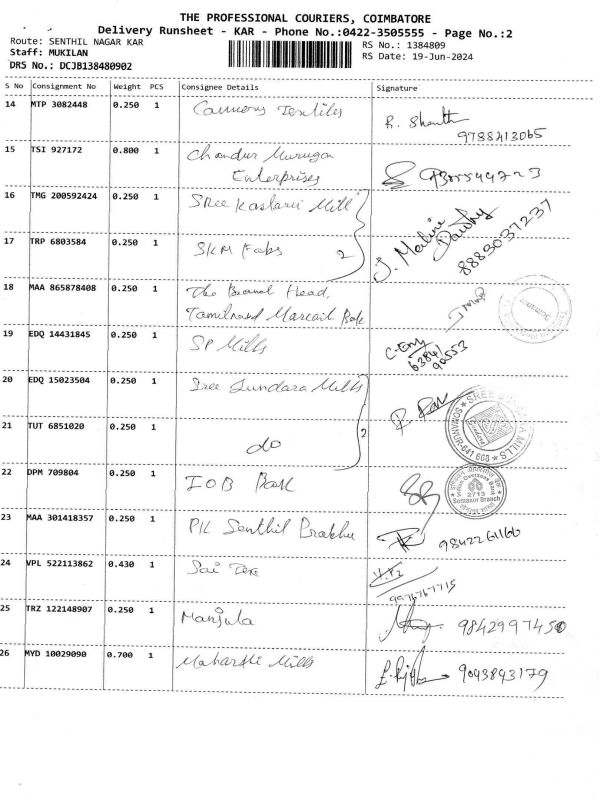 THE PROFESSIONAL COURIERS, COIMBATORE
Delivery Runsheet - KAR - Phone No.:0422-3505555 - Page No.:2
Route: SENTHIL NAGAR KAR
RS No.: 1384809
Staff: MUKILAN
RS Date: 19-Jun-2024
DRS No.: DCJB138480902
S No Consignment No Weight PCS Consignee Details Signature
14 MTP 3082448 0.250 1 Textiles
R. Shanth
9788413065
15 TSI 927172 0.800 1 Chandur Murugan
Enterprises
16 TMG 200592424 0.250 1 Sree Kastarii Mill
17 TRP 6803584 0.250 1 SKM Fabs 2
8883037237
18 MAA 865878408 0.250 1 The Branch Head,
Tamilnaad Marcail Bank
19 EDQ 14431845 0.250 1 SP Mills
6384/
90553
20 EDQ 15023504 0.250 1 Sree Sundara Mills
21 TUT 6851020 0.250 1 do 2
SOMANUR-641 668
22 DPM 709804 0.250 1 IOB Bank
Indian Overseas Bank
2713
Somanur Branch
23 MAA 301418357 0.250 1 PK Senthil Brabhu
9842261166
24 VPL 522113862 0.430 1 Sai Tex
9976767715
25 TRZ 122148907 0.250 1 Manjula
9842997450
26 MYD 10029090 0.700 1 Maharshi Mills
9043893179